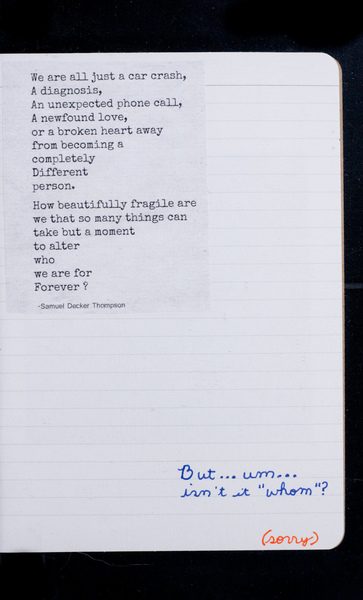 We are all just a car crash,
A diagnosis,
An unexpected phone call,
A newfound love,
or a broken heart away
from becoming a
completely
Different
person.
How beautifully fragile are
we that so many things can
take but a moment
to alter
who
we are for
Forever ?
-Samuel Decker Thompson
But... um...
isn't it "whom"?
(sorry)